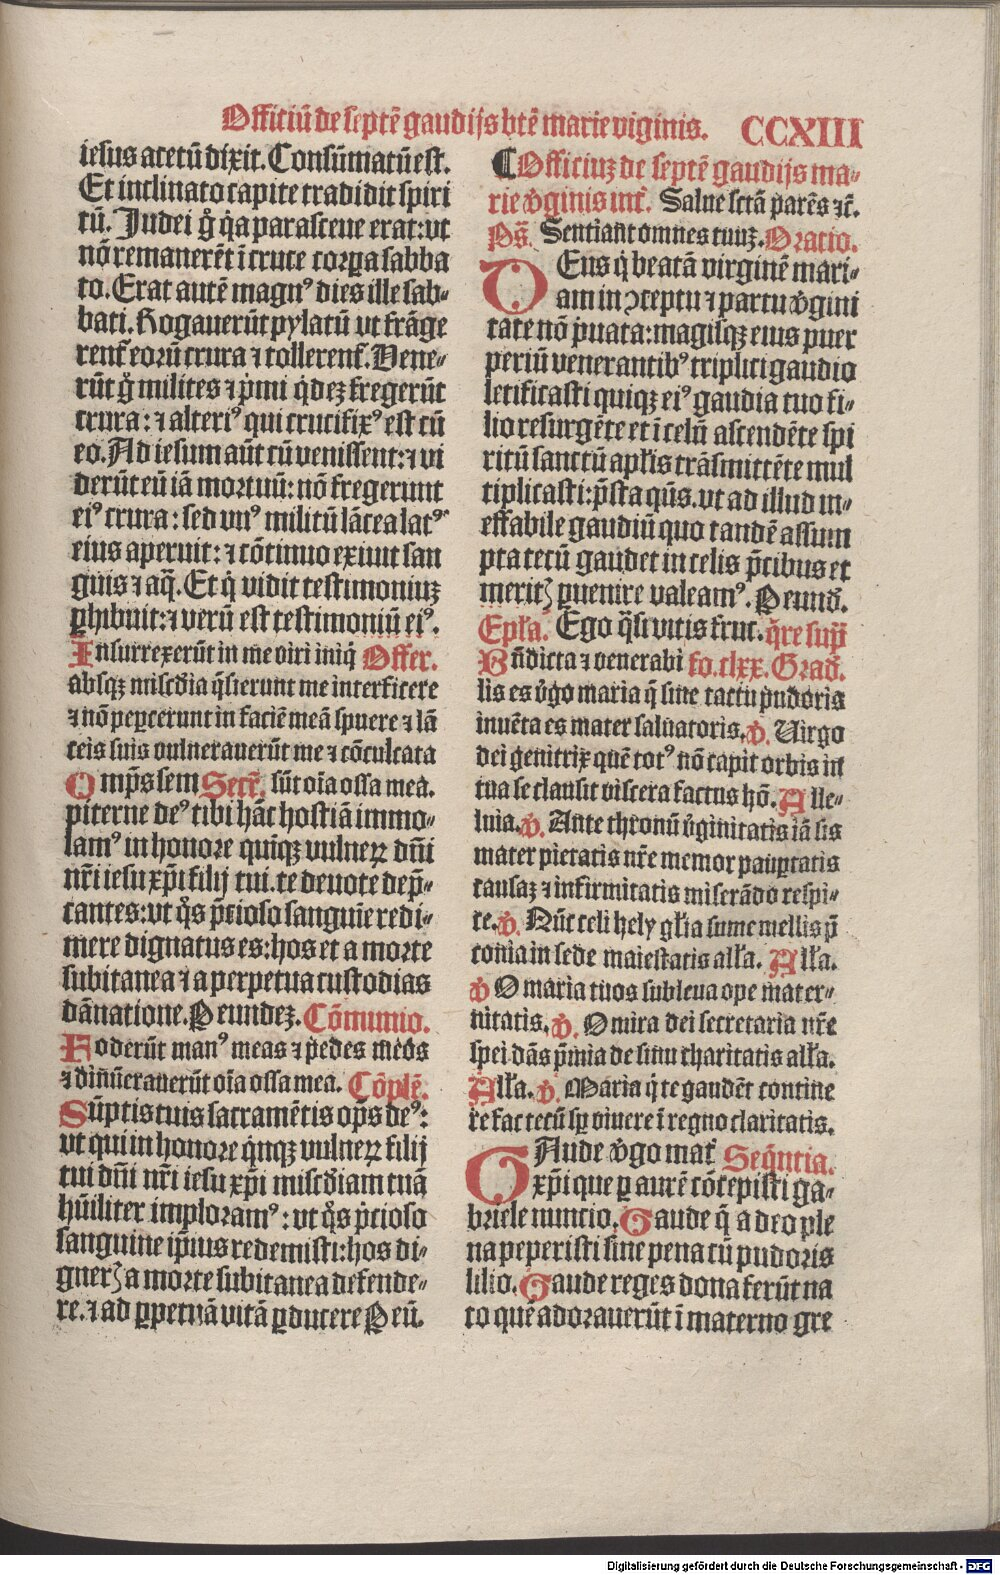 Officiū de septē gaudijs btē marie viginis. CCXIII
iesus acetū dixit. Consūmatū est.
Et inclinato capite tradidit spiri
tū. Judei g̊ q̇a parasceue erat: vt
nō remanerēt ī cruce corꝑa sabba
to. Erat autē magnꝰ dies ille sab⸗
bati. Rogauerūt pylatū vt frāge
renṫ eorū crura ⁊ tollerenṫ. Vene⸗
rūt g̊ milites ⁊ pͥmi q̇dez fregerūt
crura: ⁊ alteriꝰ qui crucifixꝰ est cū
eo. Ad iesum aūt cū venissent: ⁊ vi
derūt eū iā mortuū: nō fregerunt
eiꝰ crura: sed vnꝰ militū lācea latꝰ
eius aperuit: ⁊ cōtinuo exiuit san
guis ⁊ aq̄. Et q̇ vidit testimoniuz
ꝑhibuit: ⁊ verū est testimoniū eiꝰ.
Insurrexerūt in me viri iniq̇ Offer.
absqz mīscdia q̄sierunt me interficere
⁊ nō peꝑcerunt in faciē meā spuere ⁊ lā
ceis suis vulnerauerūt me ⁊ cōculcata
Omp̄s sem Secr̄. sūt oīa ossa mea.
piterne deꝰ tibi hāc hostiā immo⸗
lamꝰ in honore quiqz vulneꝝ dn̄i
nr̄i iesu xp̄i filij tui. te deuote dep̄⸗
cantes: vt q̊s p̄cioso sanguīe redi⸗
mere dignatus es: hos et a morte
subitanea ⁊ a perpetua custodias
dānatione. Per eundez. Cōmunio.
Foderūt manꝰ meas ⁊ pedes meos
⁊ dinūerauerūt oīa ossa mea. Cōplē.
Sūptis tuis sacramētis op̄s deꝰ:
vt qui in honore q̇nqz vulneꝝ filij
tui dn̄i nr̄i iesu xp̄i mīscdiam tuā
hūiliter imploramꝰ: vt q̊s p̄cioso
sanguine ip̄ius redemisti: hos di⸗
gneꝝ a morte subitanea defende⸗
re. ⁊ ad ꝑpetuā vitā ꝑducere Per eū.
¶ Officiuz de septē gaudijs ma⸗
rie v̇ginis inṫ. Salue sctā parēs ⁊c̄.
Ps̄. Sentiant omnes tuuz. Oratio.
DEus q̇ beatā virginē mari⸗
am in ꝯceptu ⁊ partu v̇gini
tate nō pͥuata: magisqz eius puer
periū venerantibꝰ triplici gaudio
letificasti quiqz eiꝰ gaudia tuo fi⸗
lio resurgēte et ī celū ascendēte spi
ritū sanctū apłis trāsmittēte mul
tiplicasti: p̄sta qs̄. vt ad illud in⸗
effabile gaudiū quo tandē assum
pta tecū gaudet in celis p̄cibus et
meritꝭ ꝑuenire valeamꝰ. Per eund̄.
Epła. Ego q̄si vitis fruc. q̄re sup̄
Bn̄dicta ⁊ venerabi fo. clxx. Grad̄.
lis es v̇go maria q̄ sine tactu pudoris
inuēta es mater saluatoris. v̇. Virgo
dei genitrix quē totꝰ nō capit orbis in
tua se clausit viscera factus hō. Alle⸗
luia. v̇. Ante thronū v̇ginitatis iā sis
mater pietatis nr̄e memor pauꝑtatis
causaz ⁊ infirmitatis miserādo respi⸗
re. v̇. Nūc celi hely gl̄ia sume mellis p̄
conia in sede maiestatis ałła. Ałła.
v̇ O maria tuos subleua ope mater⸗
nitatis. v̇. O mira dei secretaria nr̄e
spei dās p̄mia de sinu charitatis ałła.
Ałła. v̇. Maria q̇ te gaudēt contine
re fac tecū sꝑ viuere ī regno claritatis.
GAude v̇go maṫ Seq̄ntia.
xp̄i que ꝑ aurē cōcepisti ga⸗
briele nuncio. Gaude q̄ a deo ple
na peperisti sine pena cū pudoris
lilio. Gaude reges dona ferūt na
to quē adorauerūt ī materno gre
Digitalisierung gefördert durch die Deutsche Forschungsgemeinschaft - DFG